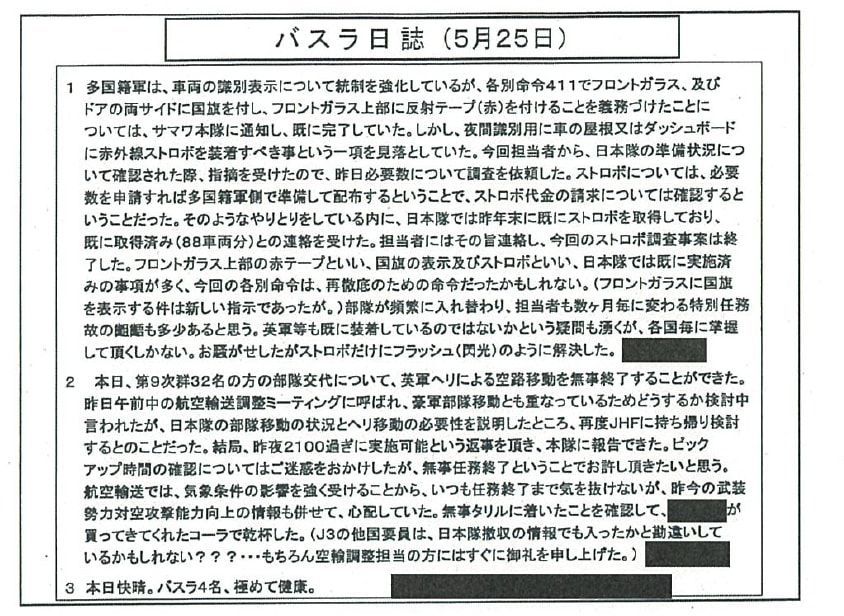 バスラ日誌（5月25日）
1　多国籍軍は、車両の識別表示について統制を強化しているが、各別命令411でフロントガラス、及び
ドアの両サイドに国旗を付し、フロントガラス上部に反射テープ（赤）を付けることを義務づけたことに
ついては、サマワ本隊に通知し、既に完了していた。しかし、夜間識別用に車の屋根又はダッシュボード
に赤外線ストロボを装着すべき事という一項を見落としていた。今回担当者から、日本隊の準備状況につい
て確認された際、指摘を受けたので、昨日必要数について調査を依頼した。ストロボについては、必要
数を申請すれば多国籍軍側で準備して配布するということで、ストロボ代金の請求については確認すると
いうことだった。そのようなやりとりをしている内に、日本隊では昨年末に既にストロボを取得しており、
既に取得済み（88車両分）との連絡を受けた。担当者にはその旨連絡し、今回のストロボ調査事案は終
了した。フロントガラス上部の赤テープといい、国旗の表示及びストロボといい、日本隊では既に実施済
みの事項が多く、今回の各別命令は、再徹底のための命令だったかもしれない。（フロントガラスに国旗
を表示する件は新しい指示であったが。）部隊が頻繁に入れ替わり、担当者も数ヶ月毎に変わる特別任務
故の齟齬も多少あると思う。英軍等も既に装着しているのではないかという疑問も湧くが、各国毎に掌握
して頂くしかない。お騒がせしたがストロボだけにフラッシュ（閃光）のように解決した。
2　本日、第9次群32名の方の部隊交代について、英軍ヘリによる空路移動を無事終了することができた。
昨日午前中の航空輸送調整ミーティングに呼ばれ、豪軍部隊移動とも重なっているためどうするか検討中
言われたが、日本隊の部隊移動の状況とヘリ移動の必要性を説明したところ、再度JHFに持ち帰り検討
するとのことだった。結局、昨夜2100過ぎに実施可能という返事を頂き、本隊に報告できた。ピック
アップ時間の確認についてはご迷惑をおかけしたが、無事任務終了ということでお許し頂きたいと思う。
航空輸送では、気象条件の影響を強く受けることから、いつも任務終了まで気を抜けないが、昨今の武装
勢力対空攻撃能力向上の情報も併せて、心配していた。無事タリルに着いたことを確認して、が
買ってきてくれたコーラで乾杯した。（J3の他国要員は、日本隊撤収の情報でも入ったかと勘違いして
いるかもしれない？？？・・・もちろん空輸調整担当の方にはすぐに御礼を申し上げた。）
3　本日快晴。バスラ4名、極めて健康。